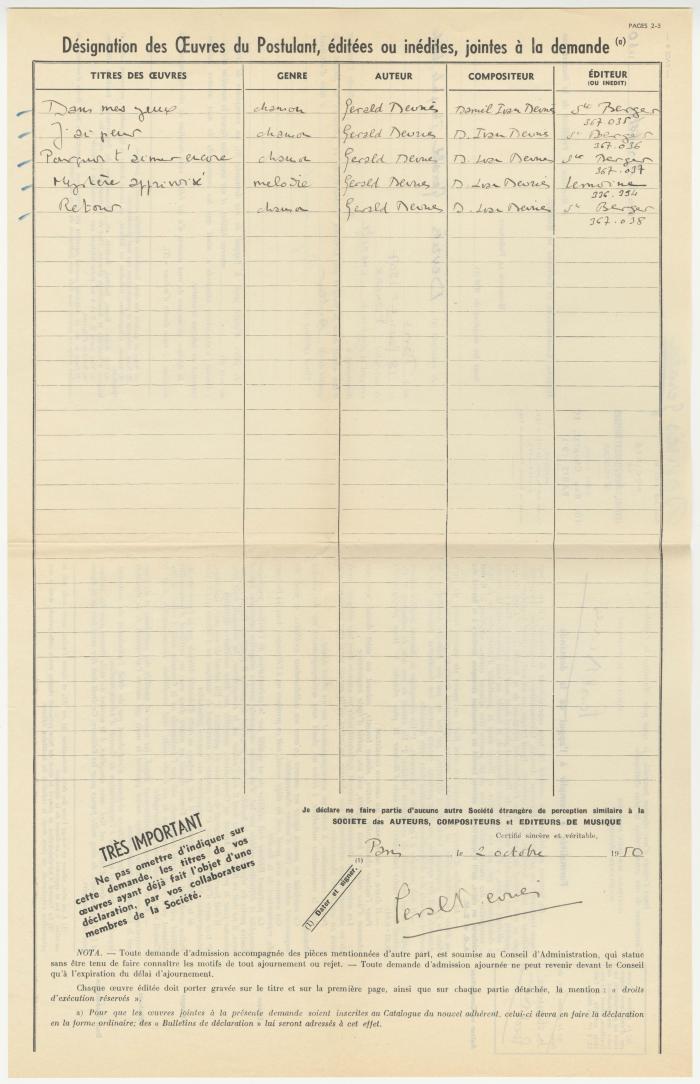 PAGES 2-3
Désignation des Œuvres du Postulant, éditées ou inédites, jointes à la demande (a)
TITRES DES ŒUVRES GENRE AUTEUR COMPOSITEUR ÉDITEUR
(OU INÉDIT)
Dans mes yeux chanson Gérald Devriès Daniel Ivan Devries Sté Berger
367.035
J'ai peur chanson Gérald Devries D. Ivan Devries Sté Berger
367.036
Pourquoi t'aimer encore chanson Gérald Devries D. Ivan Devries Sté Berger
367.037
Mystère apprivoisé melodie Gérald Devries D. Ivan Devries Lemoine
336.994
Retour chanson Gérald Devries D. Ivan Devries Sté Berger
367.038
Je déclare ne faire partie d'aucune autre Société étrangère de perception similaire à la
SOCIETE des AUTEURS, COMPOSITEURS et EDITEURS DE MUSIQUE
Certifié sincère et véritable,
Paris, le 2 octobre 1950
(1)
(1) Dater et signer.
Gérald Devriès
TRÈS IMPORTANT
Ne pas omettre d'indiquer sur
cette demande, les titres de vos
œuvres ayant déjà fait l'objet d'une
déclaration, par vos collaborateurs
membres de la Société.
NOTA. — Toute demande d'admission accompagnée des pièces mentionnées d'autre part, est soumise au Conseil d'Administration, qui statue
sans être tenu de faire connaître les motifs de tout ajournement ou rejet. — Toute demande d'admission ajournée ne peut revenir devant le Conseil
qu'à l'expiration du délai d'ajournement.
Chaque œuvre éditée doit porter gravée sur le titre et sur la première page, ainsi que sur chaque partie détachée, la mention : « droits
d'exécution réservés ».
a) Pour que les œuvres jointes à la présente demande soient inscrites au Catalogue du nouvel adhérent, celui-ci devra en faire la déclaration
en la forme ordinaire; des « Bulletins de déclaration » lui seront adressés à cet effet.